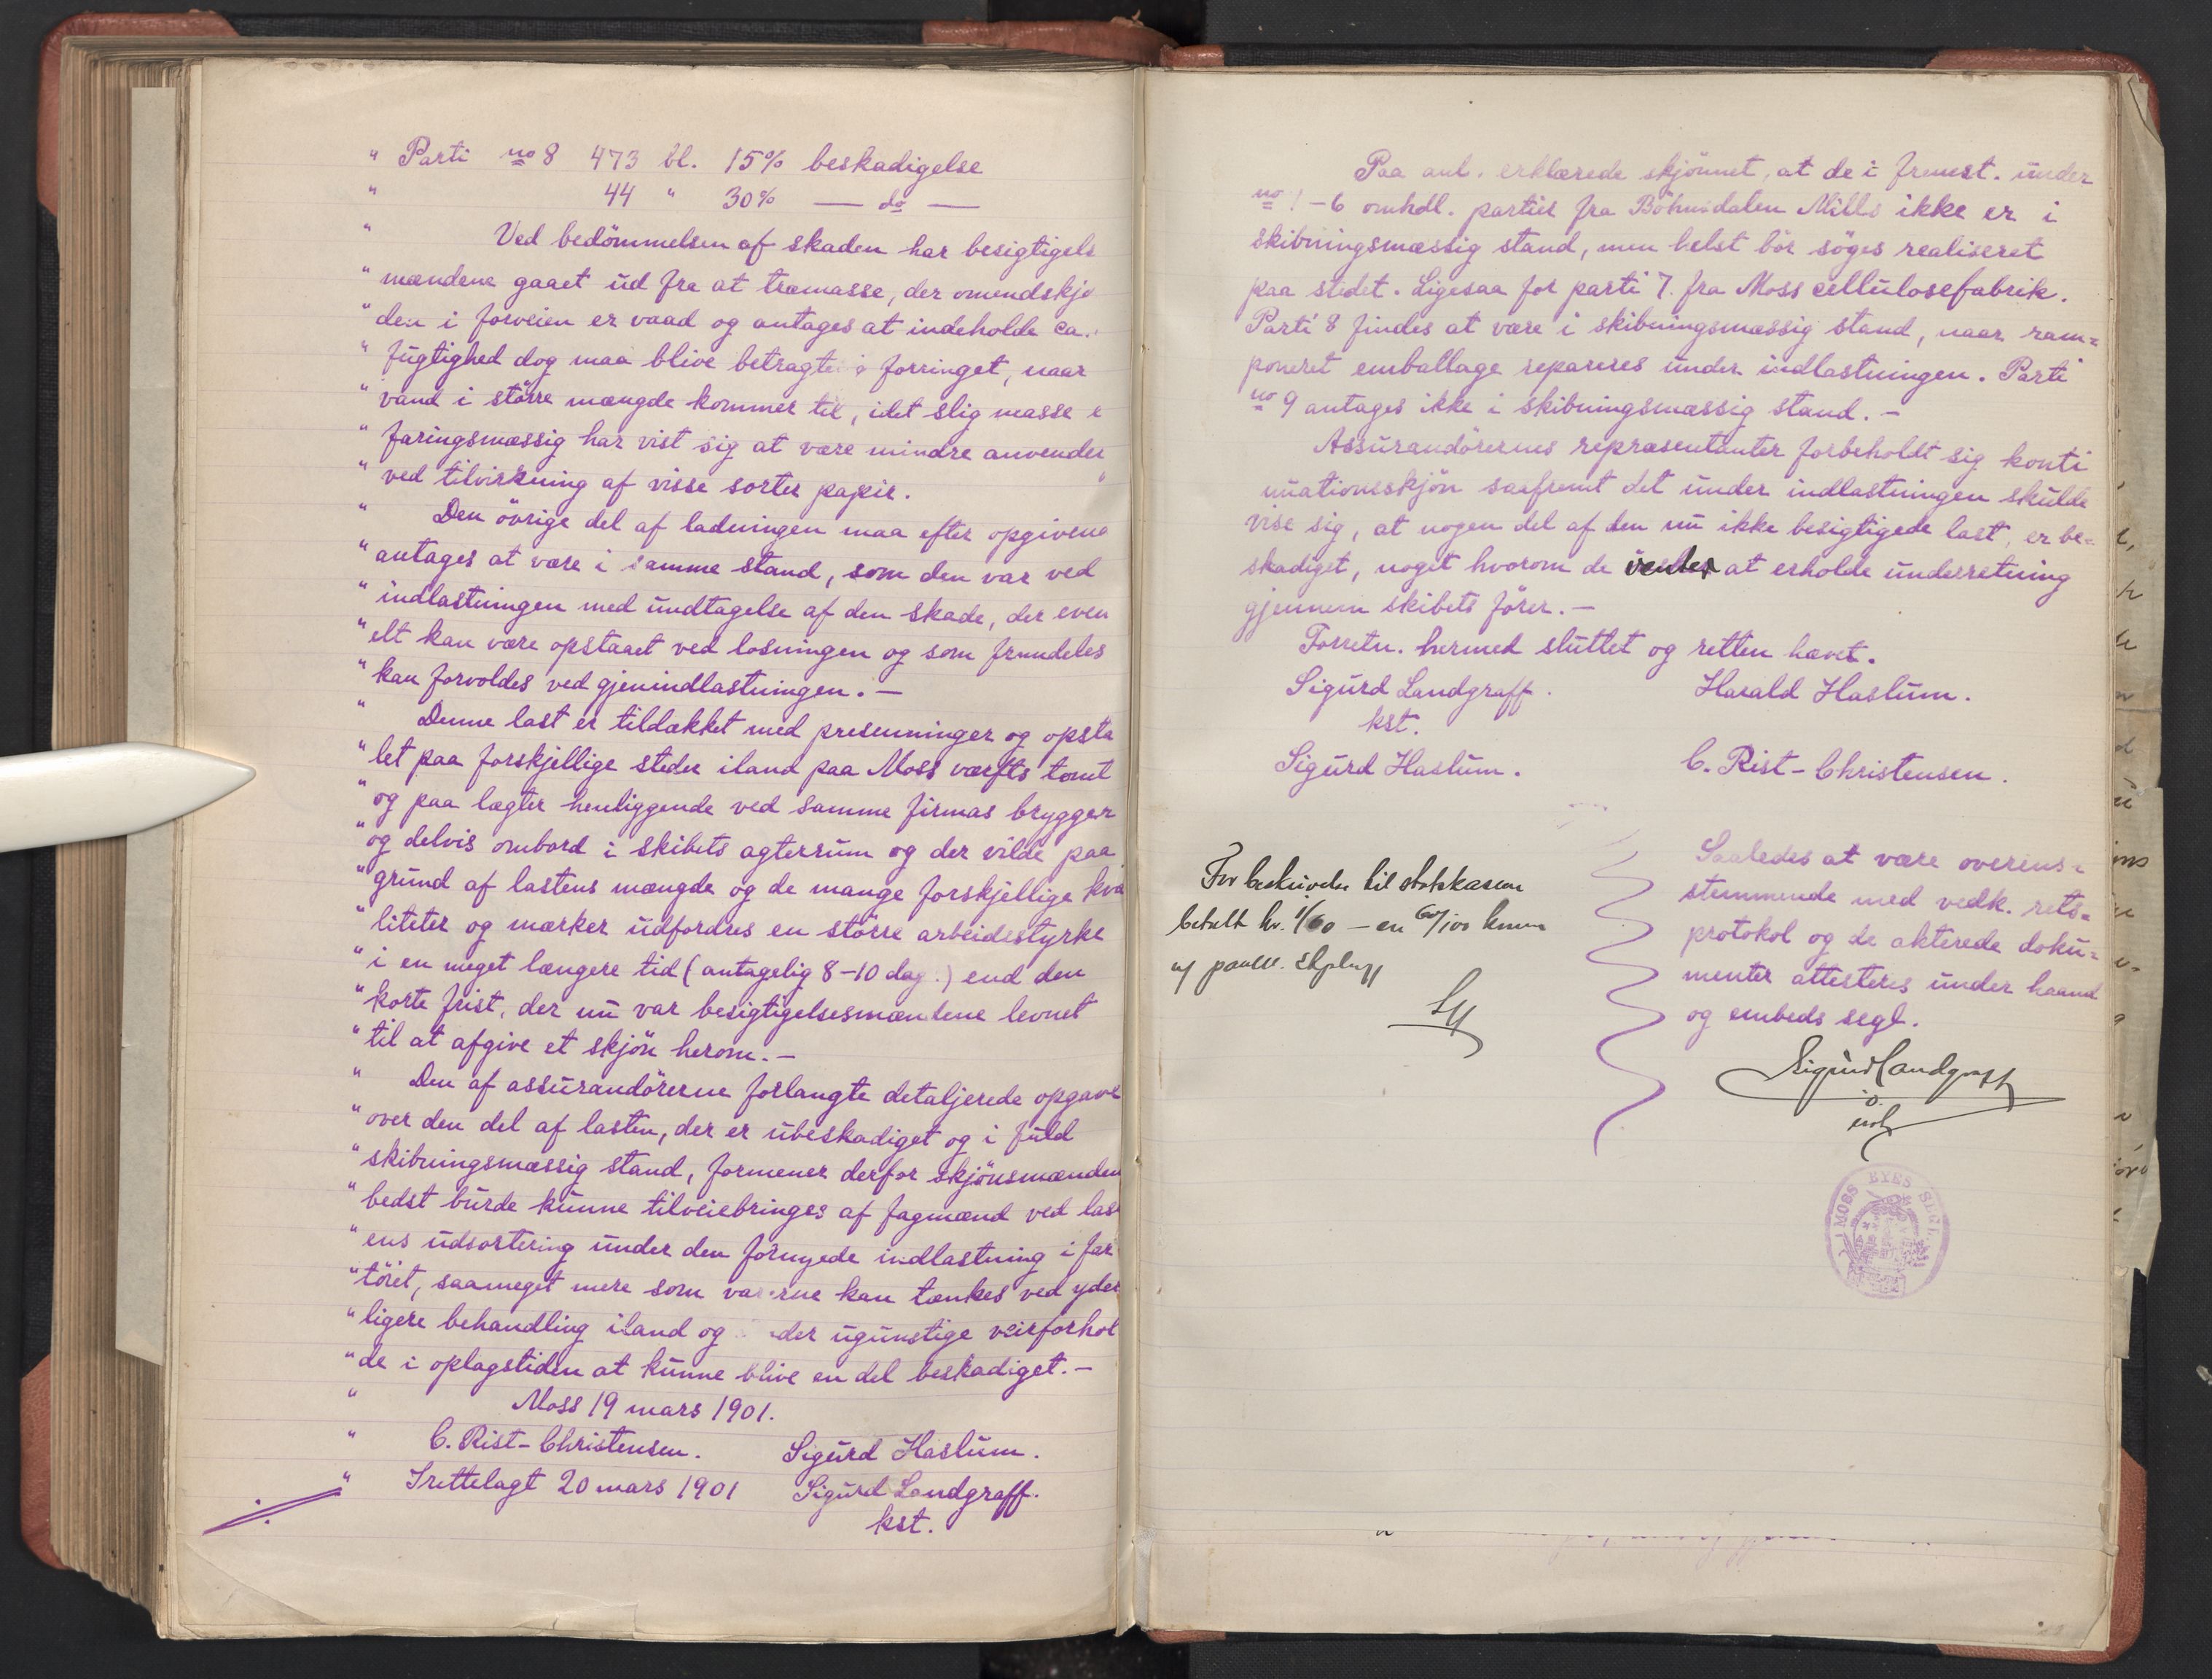 " Parti no 8 473 bl. 15% beskadigelse
" 44 " 30% — do —
" Ved bedömmelsen af skaden har besigtigels
" mændene gaaet ud fra at træmasse, der omendskjø
" den i forveien er vaad og antages at indeholde ca.
" fugtighed dog maa blive betragtet forringet, naar
" vand i större mængde kommer til, idet slig masse e
" faringsmæssig har vist sig at være mindre anvendel
" ved tilvirkning af visse sorter papir.
" Den övrige del af ladningen maa efter opgivend
" antages at være i samme stand, som den var ved
" indlastningen med undtagelse af den skade, der even
" elt kan være opstaaet ved losningen og som fremdeles
" kan forvoldes ved gjenindlastningen. —
" Denne last er tildækket med presenninger og opsta
" let paa forskjellige steder iland paa Moss værfts tomt
" og paa lægter henliggende ved samme firmas brygger
" og delvis ombord i skibets agterrum og der vilde paa
" grund af lastens mængde og de mange forskjellige kva
" liteter og mærker udfordres en större arbeidsstyrke
" i en meget længere tid (antagelig 8-10 dag.) end den
" korte frist, der nu var besigtigelsesmændene levnet
" til at afgive et skjön herom. —
" Den af assurandörerne forlangte detaljerede opgave
" over den del af lasten, der er ubeskadiget og i fuld
" skibningsmæssig stand, formener derfor skjönsmænden
" bedst burde kunne tilveiebringes af fagmænd ved last
" ens udsortering under den fornyede indlastning i far
" töiet, saameget mere som varerne kan tænkes ved yder
" ligere behandling iland og under ugunstige veirforhol
" de i oplagstiden at kunne blive en del beskadiget. —
" Moss 19 mars 1901.
" C. Rist-Christensen. Sigurd Haslum.
" Irettelagt 20 mars 1901 Sigurd Landgraff.
kst.
Paa anl. erklærede skjönnet, at de i fremst. under
no 1-6 omhdl. partier fra Böhnsdalen Mills ikke er i
skibningsmæssig stand, men helst bör söges realiseret
paa stedet. Ligesaa for parti 7. fra Moss cellulosefabrik.
Parti 8 findes at være i skibningsmæssig stand, naar ram=
poneret emballage repareres under indlastningen. Parti
no 9 antages ikke i skibningsmæssig stand. —
Assurandörernes repræsentanter forbeholdt sig konti
nuationsskjön saafremt det under indlastningen skulde
vise sig, at nogen del af den nu ikke besigtigede last, er be=
skadiget, noget hvorom de venter at erholde underretning
gjennem skibets förer. —
Forretn. hermed sluttet og retten hævet.
Sigurd Landgraff. Harald Haslum.
kst.
Sigurd Haslum. C. Rist-Christensen.
For beskrivelse til statskassen
betalt kr. 1/60 — en 60/100 krone
Saaledes at være overens=
stemmende med vedk. rets=
protokol og de akterede doku=
menter attesteres under haand
og embeds segl.
Sigurd Landgraff
MOSS BYES SEGL